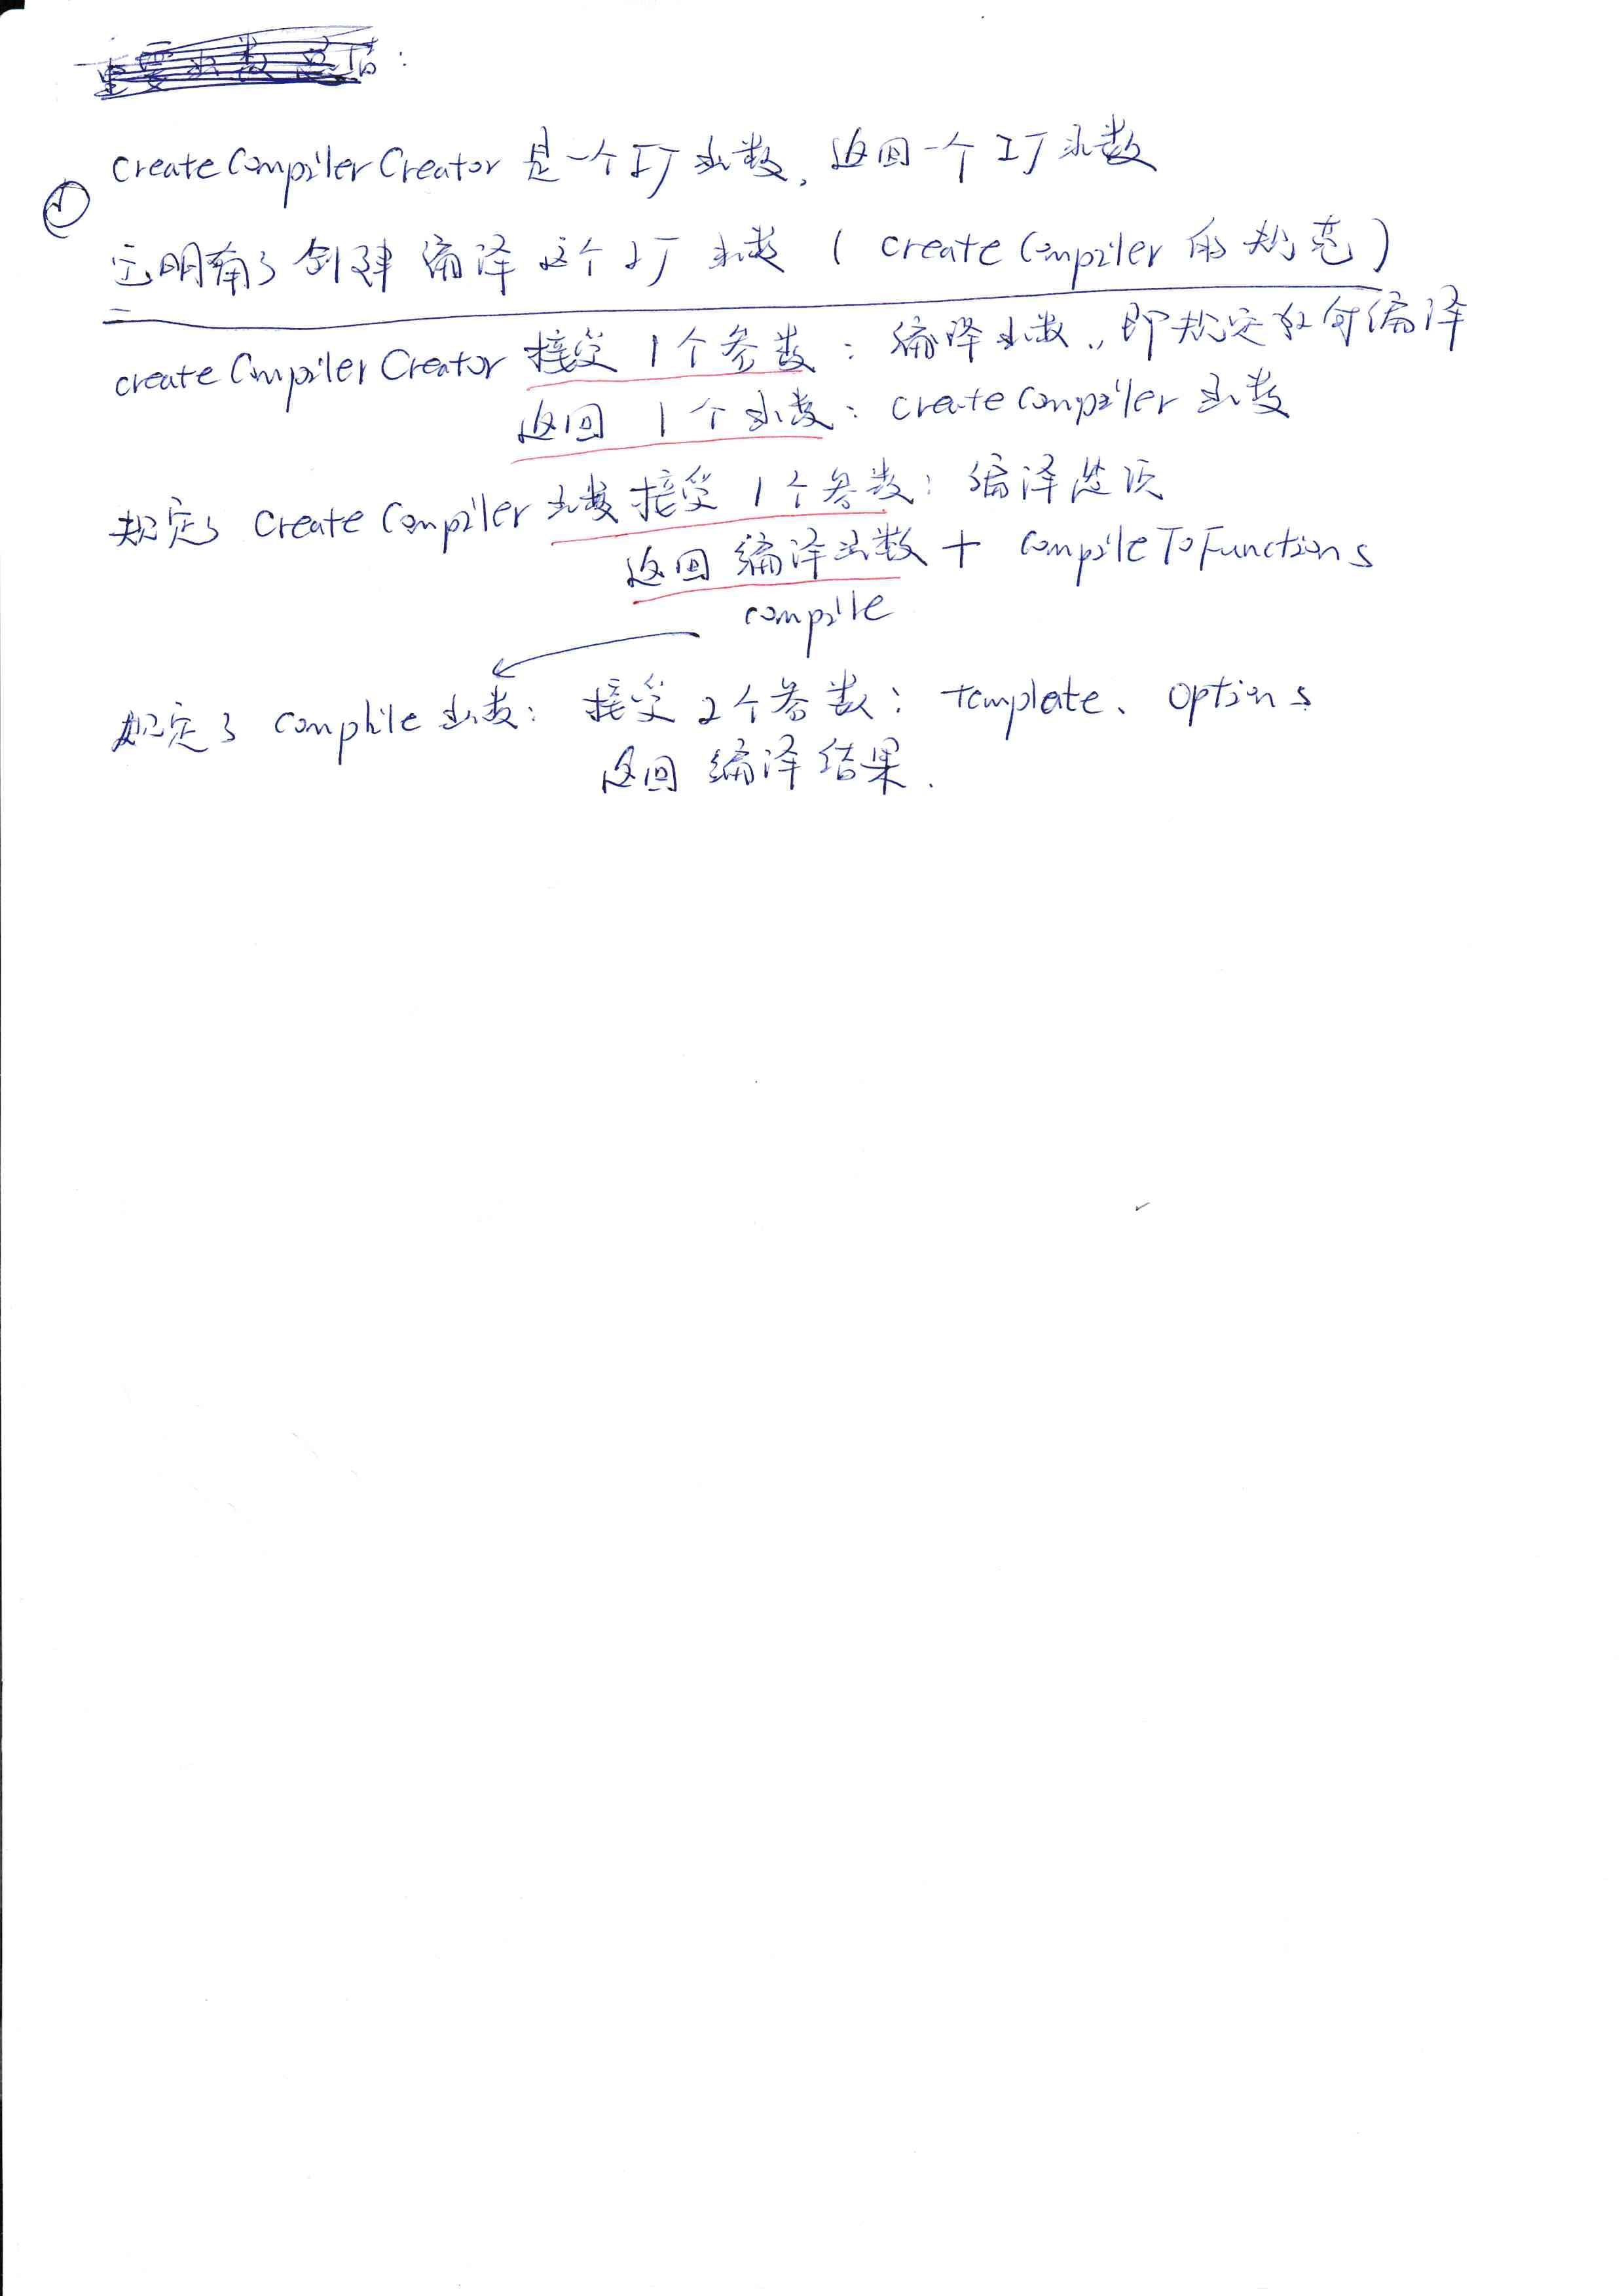 createCompilerCreator 是一个工厂函数,返回一个工厂函数
①
它明确了创建编译这个工厂函数 ( createCompiler 的规范 )
createCompilerCreator 接受1个参数: 编译函数,即规定如何编译
返回1个函数: createCompiler 函数
规定了 createCompiler 函数接受1个参数: 编译选项
返回编译函数 + compileToFunctions
compile
规定了 comphile 函数: 接受2个参数: template、options
返回编译结果.